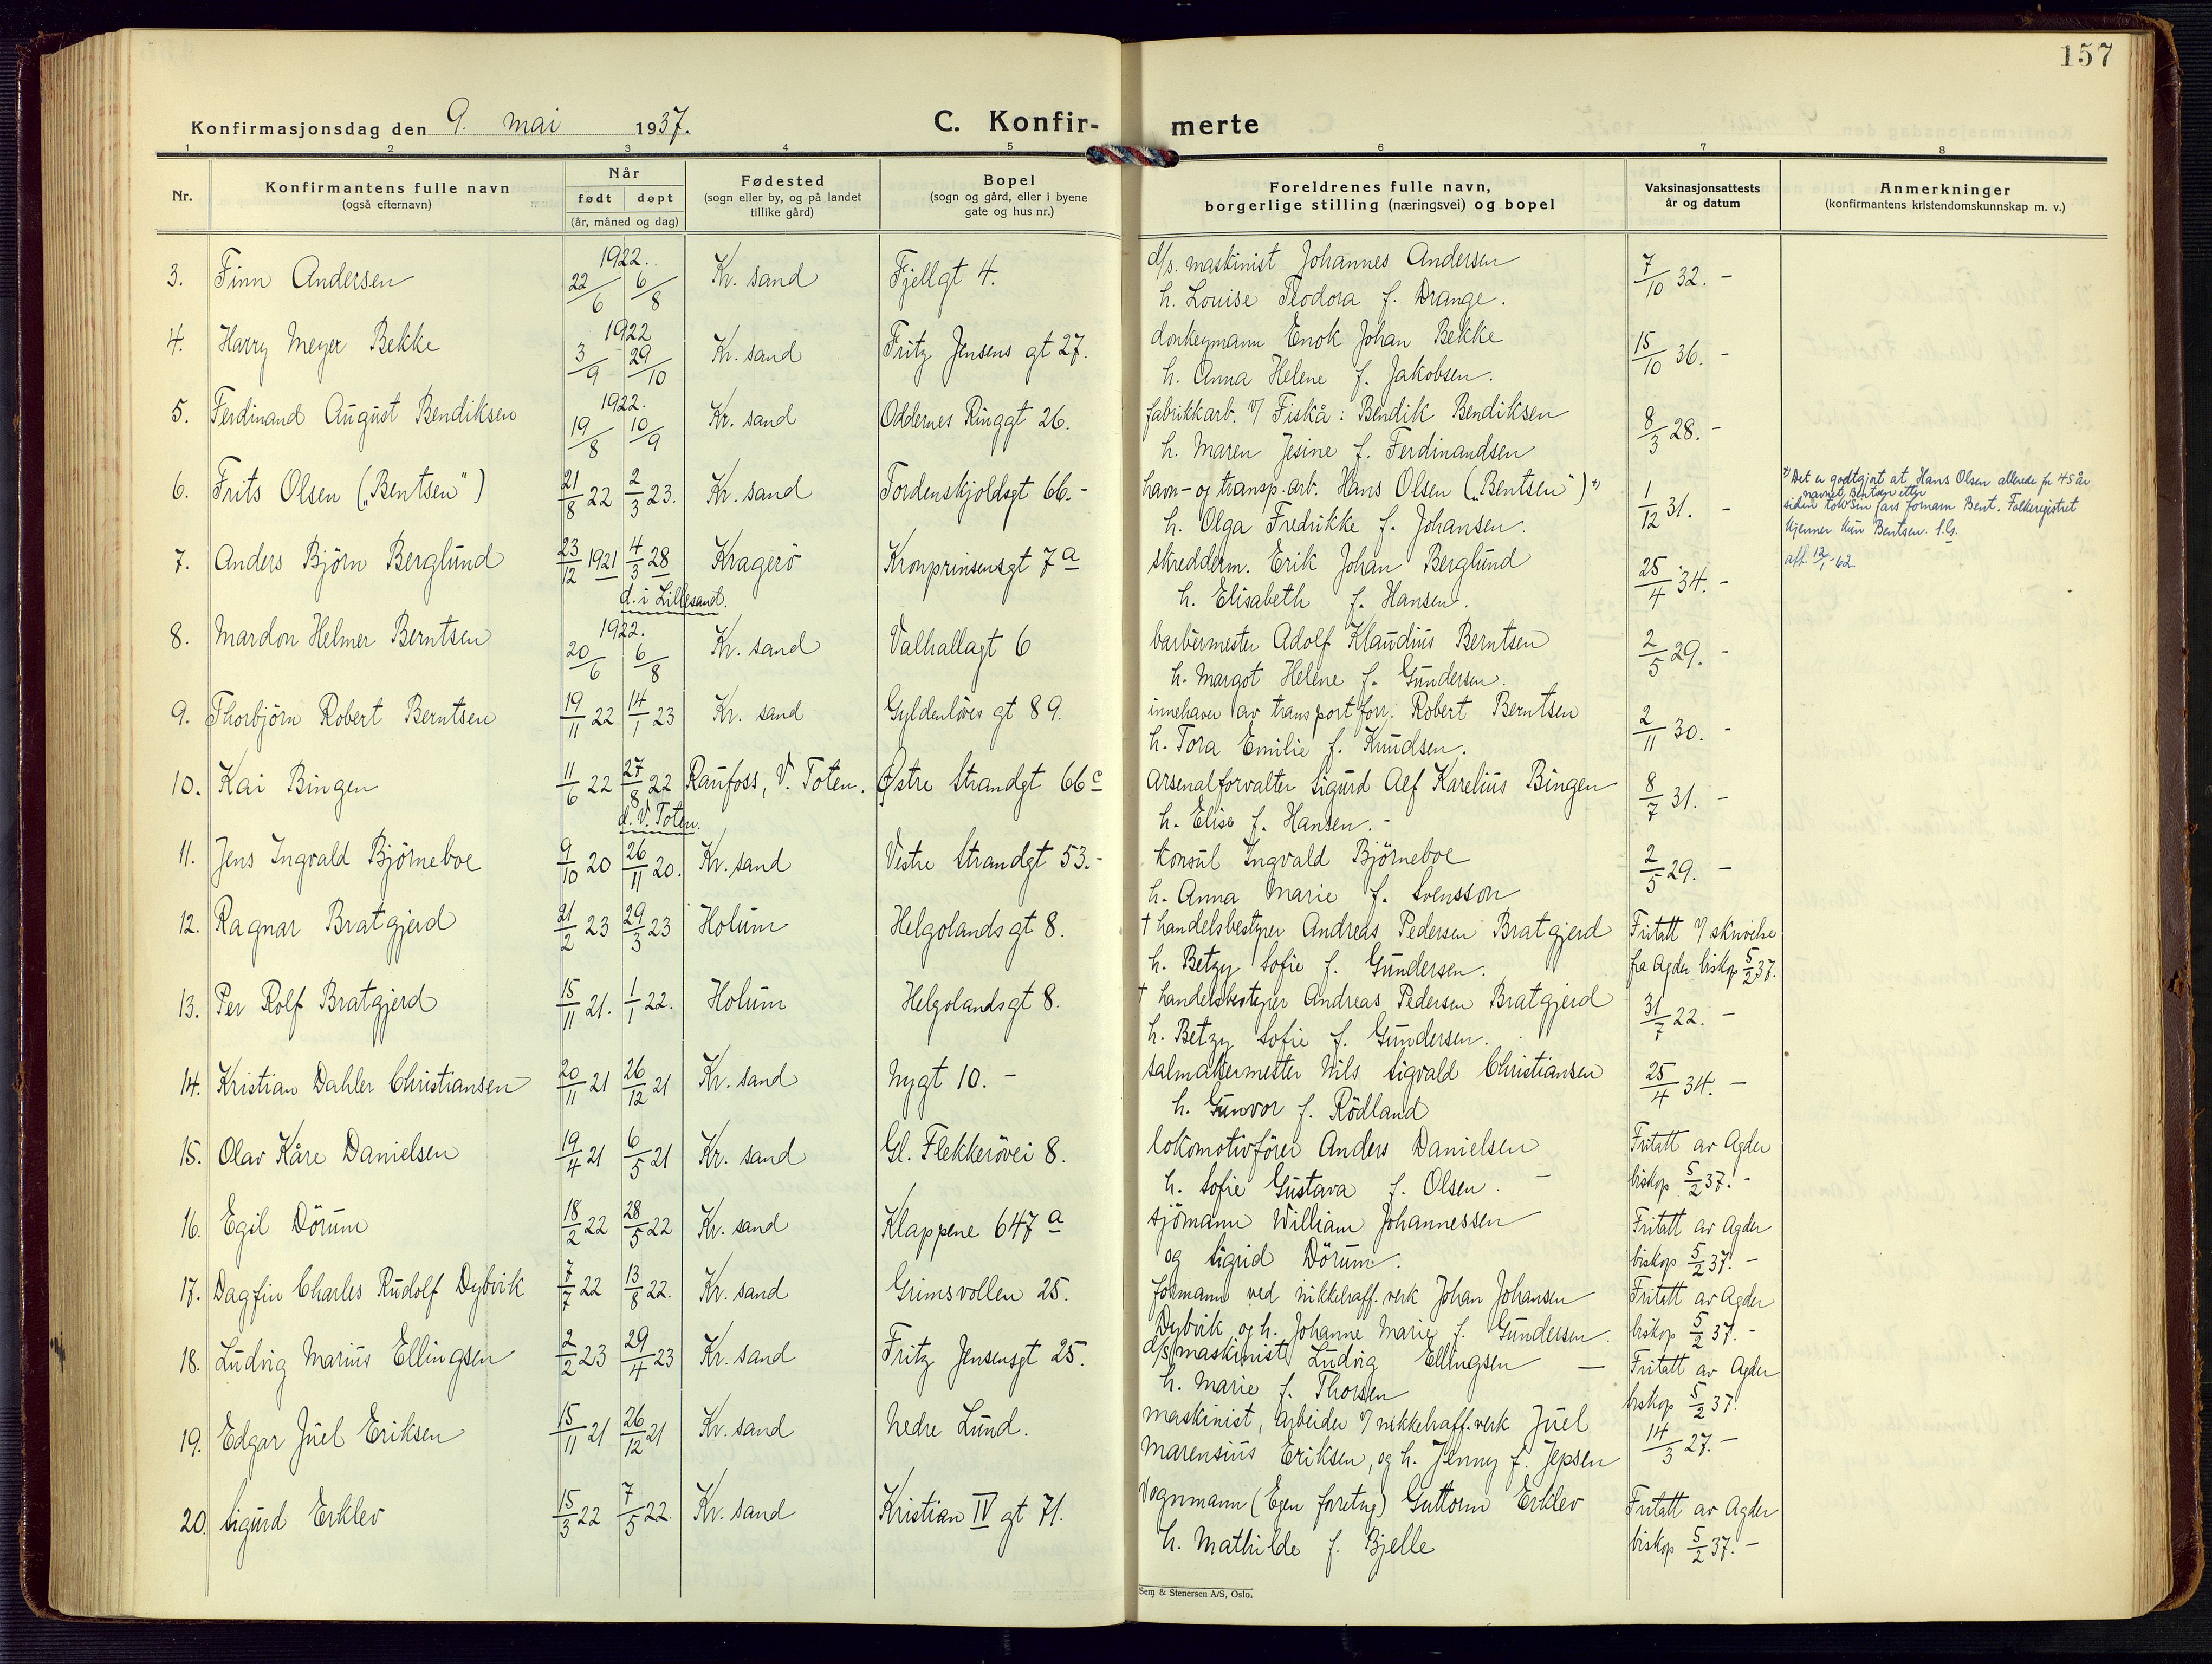 157
Konfirmasjonsdag den 9. mai 1937.
C. Konfirmerte
1 2 3 4 5 6 7 8
Nr.
Konfirmantens fulle navn
(også efternavn)
Når
født døpt
(år, måned og dag)
Fødested
(sogn eller by, og på landet
tillike gård)
Bopel
(sogn og gård, eller i byene
gate og hus nr.)
Foreldrenes fulle navn,
borgerlige stilling (næringsvei) og bopel
Vaksinasjonsattests
år og datum
Anmerkninger
(konfirmantens kristendomskunnskap m. v.)
3. Finn Andersen 1922. 22/6 6/8 Kr. sand Fjellgt 4. d/s. maskinist Johannes Andersen 7/10 32. -
h. Louise Teodora f. Drange.
4. Harry Meyer Bekke 1922 3/9 29/10 Kr. sand Fritz Jensens gt 27. donkeymann Enok Johan Bekke 15/10 36. -
h. Anna Helene f. Jakobsen.
5. Ferdinand August Bendiksen 1922. 19/8 10/9 Kr. sand Oddernes Ringgt 26. fabrikkarb. v/ Fiskå: Bendik Bendiksen 8/3 28. -
h. Maren Jesine f. Ferdinandsen
6. Frits Olsen („Bentsen") 21/8 22 2/3 23. Kr. sand Tordenskjoldsgt 66. - havn- og transp. arb. Hans Olsen („Bentsen") *) 1/12 31. -
h. Olga Fredrikke f. Johansen.
*) Det er godtgjort at Hans Olsen allerede for 45 år
siden tok navnet Bentsen etter sin fars fornavn Bent. Folkeregistret
kjenner kun Bentsen. S.G.
att. 12/1-62.
7. Anders Bjørn Berglund 23/12 1921 4/3 28 Kragerö Kronprinsensgt 7a skredderm. Erik Johan Berglund 25/4 34. -
d. i Lillesand. h. Elisabeth f. Hansen.
8. Mardon Helmer Berntsen 1922. 20/6 6/8 Kr. sand Valhallagt 6 barbermester Adolf Klaudius Berntsen 2/5 29. -
h. Margot Helene f. Gundersen.
9. Thorbjörn Robert Berntsen 19/11 22 14/1 23 Kr. sand Gyldenlöves gt 89. innehaver av transportforr. Robert Berntsen 2/11 30. -
h. Tora Emilie f. Knudsen.
10. Kai Bingen 11/6 22 27/8 22 Raufoss, V. Toten. Østre Strandgt 66c Arsenalforvalter Sigurd Alf Karelius Bingen 8/7 31. -
d. V. Toten. h. Elise f. Hansen. -
11. Jens Ingvald Bjørneboe 9/10 20 26/11 20. Kr. sand Vestre Strandgt 53. - Konsul Ingvald Bjørneboe 2/5 29. -
h. Anna Marie f. Svensson
12. Ragnar Bratgjerd 21/2 23 29/3 23 Holum Helgolandsgt 8. † handelsbestyrer Andreas Pedersen Bratgjerd Fritatt v/ skrivelse
h. Betzy Sofie f. Gundersen. fra Agder biskop 5/2 37.
13. Per Rolf Bratgjerd 15/11 21. 1/1 22. Holum Helgolandsgt 8. † handelsbestyrer Andreas Pedersen Bratgjerd 31/7 22. -
h. Betzy Sofie f. Gundersen.
14. Kristian Dahler Christiansen 20/11 21 26/12 21 Kr. sand Nygt 10. - salmakermester Nils Sigvald Christiansen 25/4 34. -
h. Gunvor f. Rödland
15. Olav Kåre Danielsen 19/4 21 6/5 21 Kr. sand Gl. Flekkerövei 8. lokomotivförer Anders Danielsen Fritatt av Agder
h. Sofie Gustava f. Olsen. - biskop 5/2 37. -
16. Egil Dörum 18/2 22 28/5 22 Kr. sand Klappene 647a sjömann William Johannessen Fritatt av Agder
og Sigrid Dörum. biskop 5/2 37. -
17. Dagfin Charles Rudolf Dybvik 7/7 22 13/8 22. Kr. sand Grimsvollen 25. formann ved nikkelraff. verk Johan Johansen Fritatt av Agder
Dybvik og h. Johanne Marie f. Gundersen. biskop 5/2 37. -
18. Ludvig Marius Ellingsen 2/2 23 29/4 23 Kr. sand Fritz Jensensgt 25. d/s maskinist Ludvig Ellingsen - Fritatt av Agder
h. Marie f. Thorsen biskop 5/2 37.
19. Edgar Juel Eriksen 15/11 21 26/12 21 Kr. sand Nedre Lund. maskinist, arbeider v/ nikkelraff. verk Juel 14/3 27. -
Marensius Eriksen, og h. Jenny f. Jepsen
20. Sigurd Erklev 15/3 22 7/5 22. Kr. sand Kristian IV gt 71. Vognmann (Egen forretng) Guttorm Erklev Fritatt av Agder
h. Mathilde f. Bjelle biskop 5/2 37. -
Sem & Stenersen A/S, Oslo.